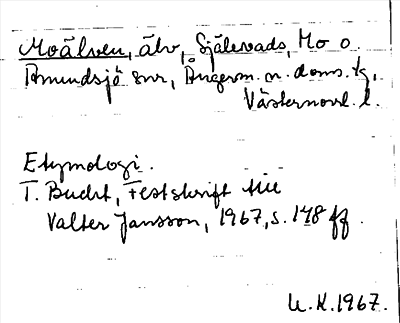 Moälven, älv, Själevads, Mo o.
Åmundsjö snr, Ångerm. n. doms. tg,
Västernorrl. l.
Etymologi.
T. Bucht, Festskrift till
Valter Jansson, 1967, s. 148 ff.
U.K. 1967.